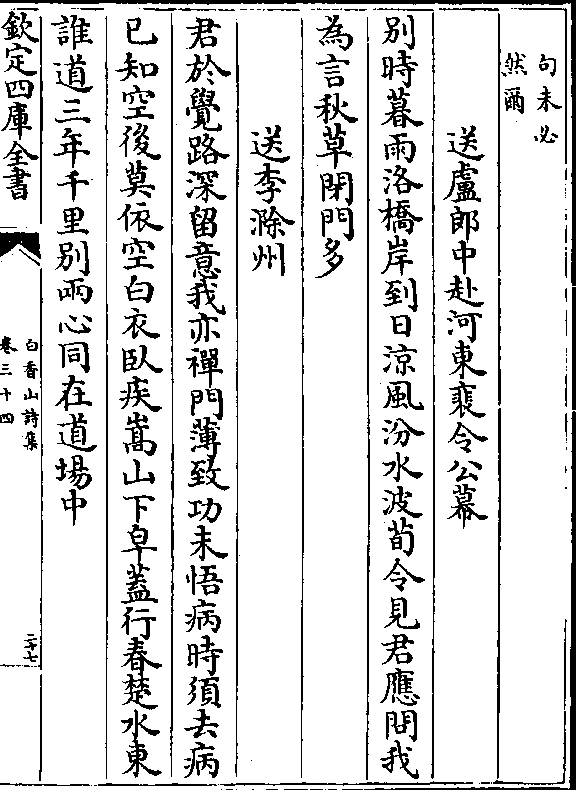 句未必
然爾
送盧郎中赴河東裴令公幕
別時暮雨洛橋岸到日涼風汾水波荀令見君應問我
為言秋草閉門多
送李滁州
君於覺路深留意我亦禪門薄致功未悟病時須去病
已知空後莫依空白衣臥疾嵩山下皁蓋行春楚水東
誰道三年千里別兩心同在道場中
欽定四庫全書
白香山詩集
卷三十四
二十七